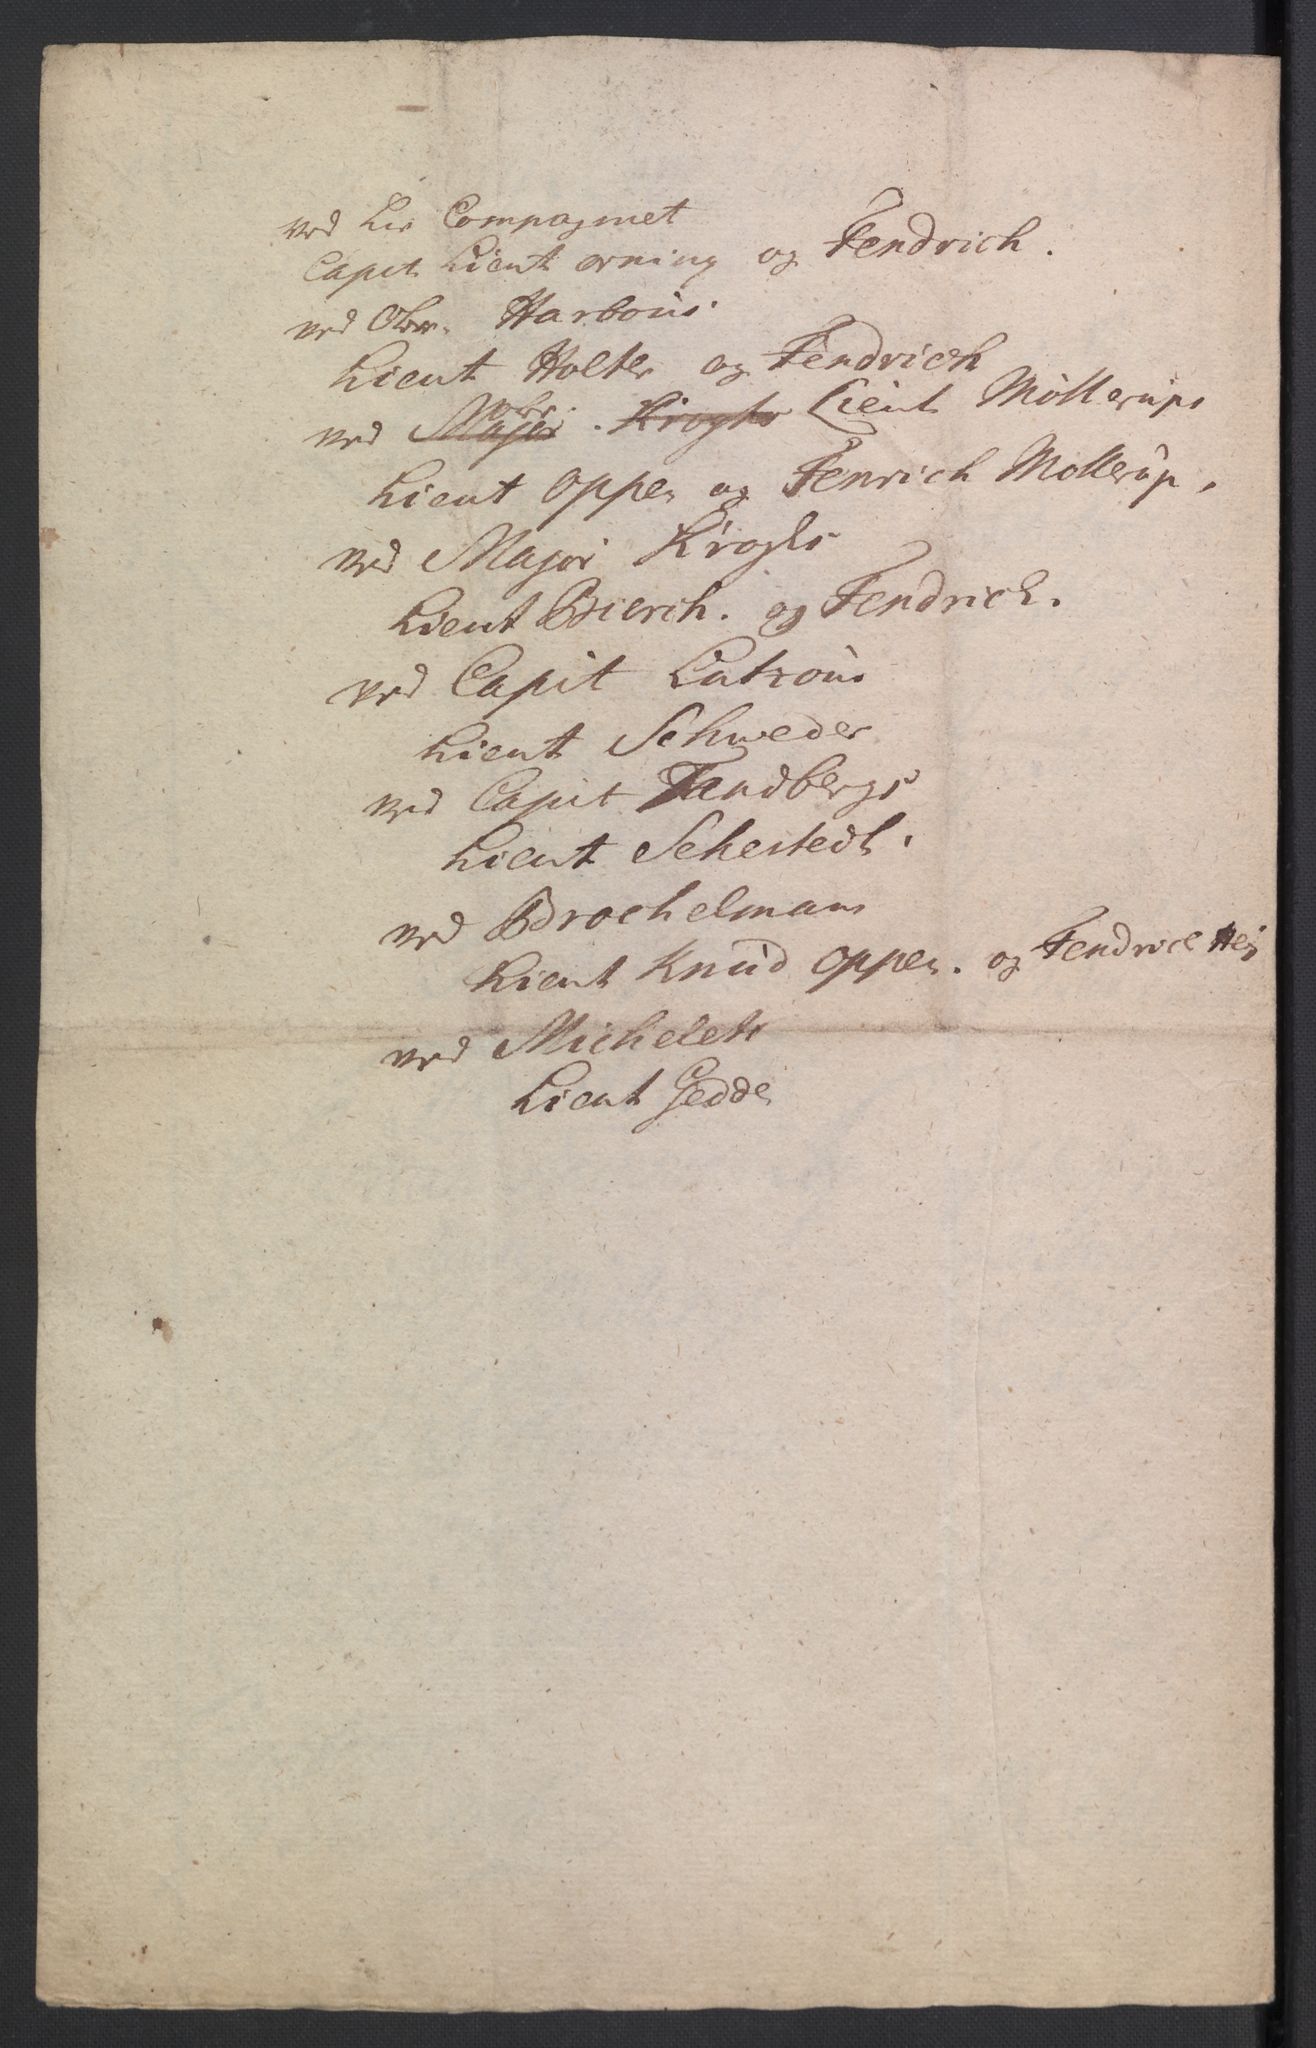 ved Liv Compagniet
Capit Lieut orning og Fendrich.
ved Obr. Harboús
Lieut Holter og Fendrich
Obr.
ved Major. Kroghs Lieut Möllerúps
Lieut oppen og Fenrich Möllerúp,
ved Major Kroghs
Lieut Bierch. og Fendrich.
ved Capit Lútzoús
Lieut Schweder
ved Capit Tandbergs
Lieut Sehestedt.
ved Brochelmans
Lieut Knúd oppen. og Fendrich
ved Michelets
Lieut Gedde